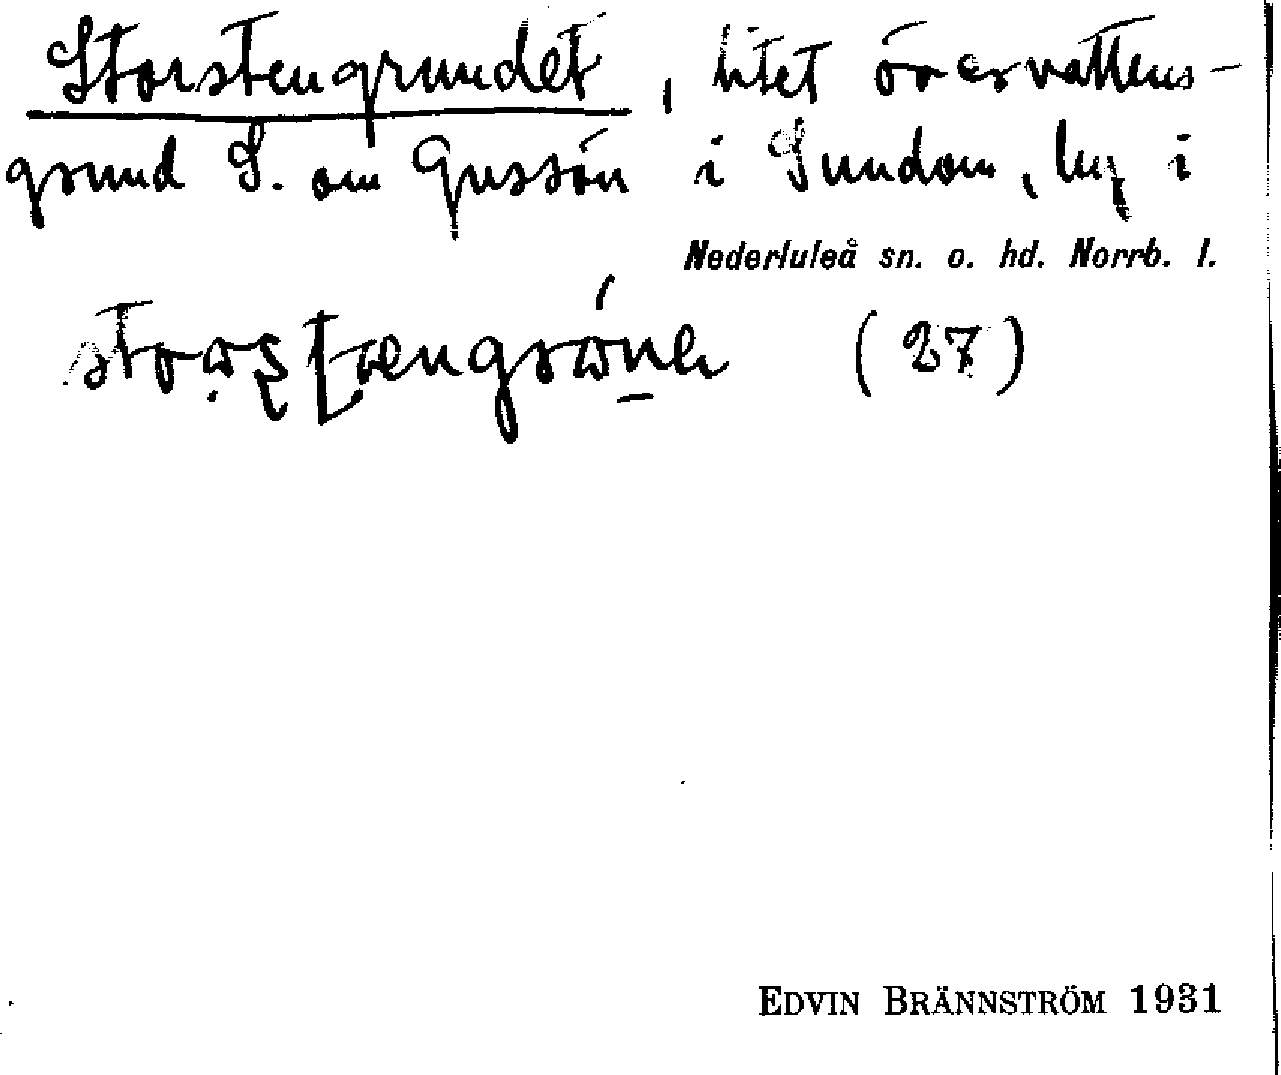 Storstengrundet, litet övervattens-
grund S. om Gussön i Sundom, by i
Nederluleå sn. o. hd. Norrb. l.
(27)
EDVIN BRÄNNSTRÖM 1931